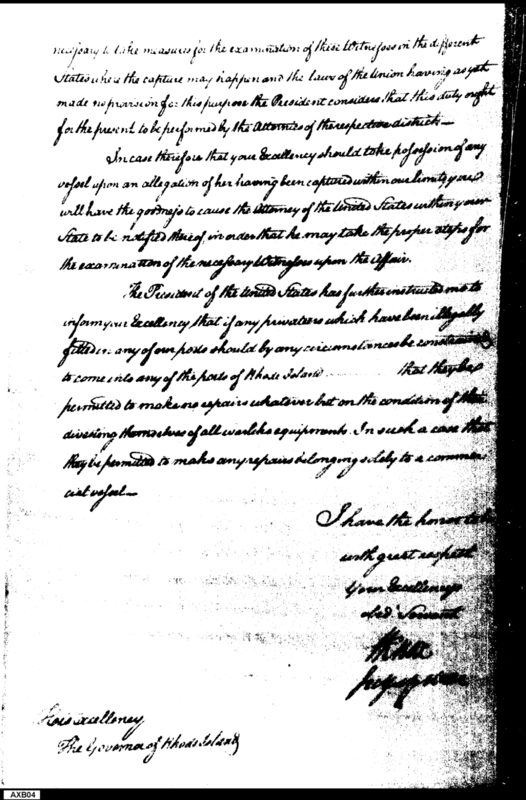 necessary to take measures for the examination of these Witnesses in the different
States where the capture may happen and the laws of the Union having as yet
made no provision for this purpose the President considers that this duty ought
for the present to be performed by the Attornies of the respective districts—
In case therefore that your Excellency should take possession of any
vessel upon an allegation of her having been captured within our limits, you
will have the goodness to cause the Attorney of the United States within your
State to be notified thereof, in order that he may take the proper steps for
the examination of the necessary Witnesses upon the Affair.
The President of the United States has further instructed me to
inform your Excellency that if any privateers which have been illegally
fitted in any of our ports should by any circumstances be constrained
to come into any of the ports of Rhode Island that they be
permitted to make no repairs whatever but on the condition of their
divesting themselves of all warlike equipments. In such a case that
they be permitted to make any repairs belonging solely to a commer
cial vessel—
I have the honor to be
with great respect
Your Excellency's
obed. Servant
HKnox
Secy of War
His Excellency
The Governor of Rhode Island
AXB04